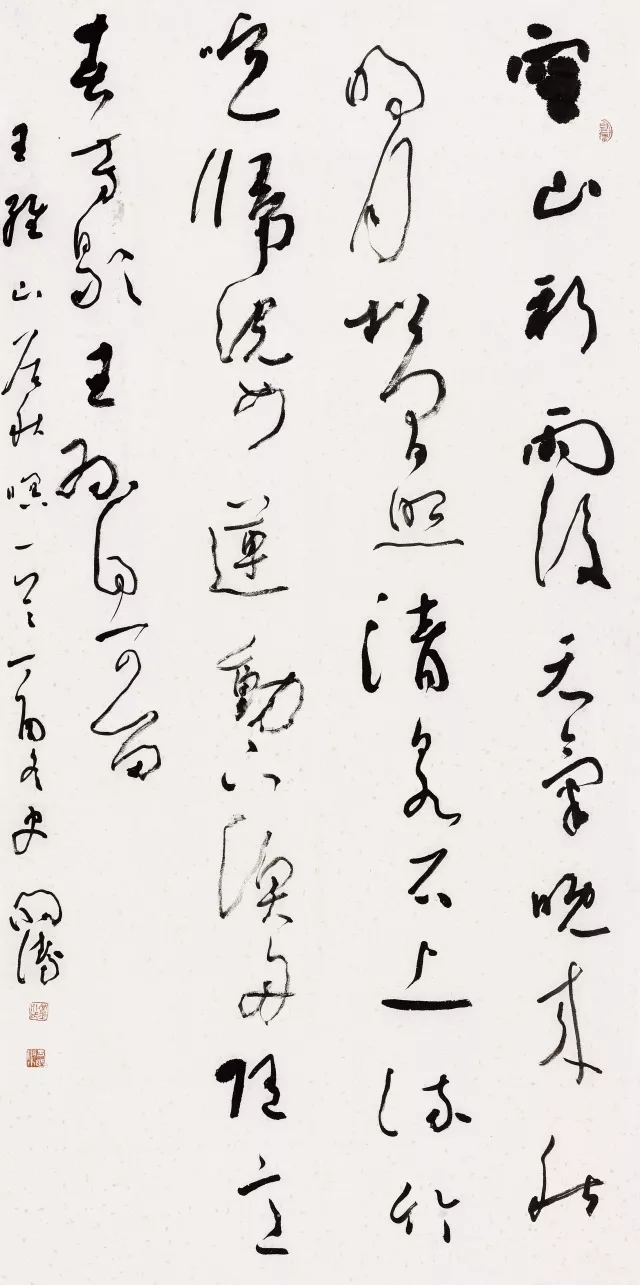 空山新雨後天氣晚來秋
明月松間照清泉石上流竹
喧歸浣女蓮動下漁舟隨意
春芳歇王孫自可留
王維山居秋暝